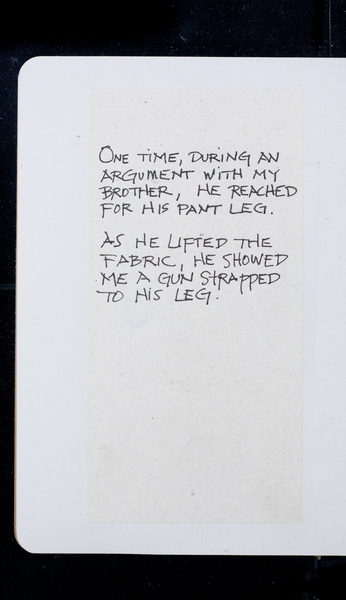 ONE TIME, DURING AN
ARGUMENT WITH MY
BROTHER, HE REACHED
FOR HIS PANT LEG.
AS HE LIFTED THE
FABRIC, HE SHOWED
ME A GUN STRAPPED
TO HIS LEG.